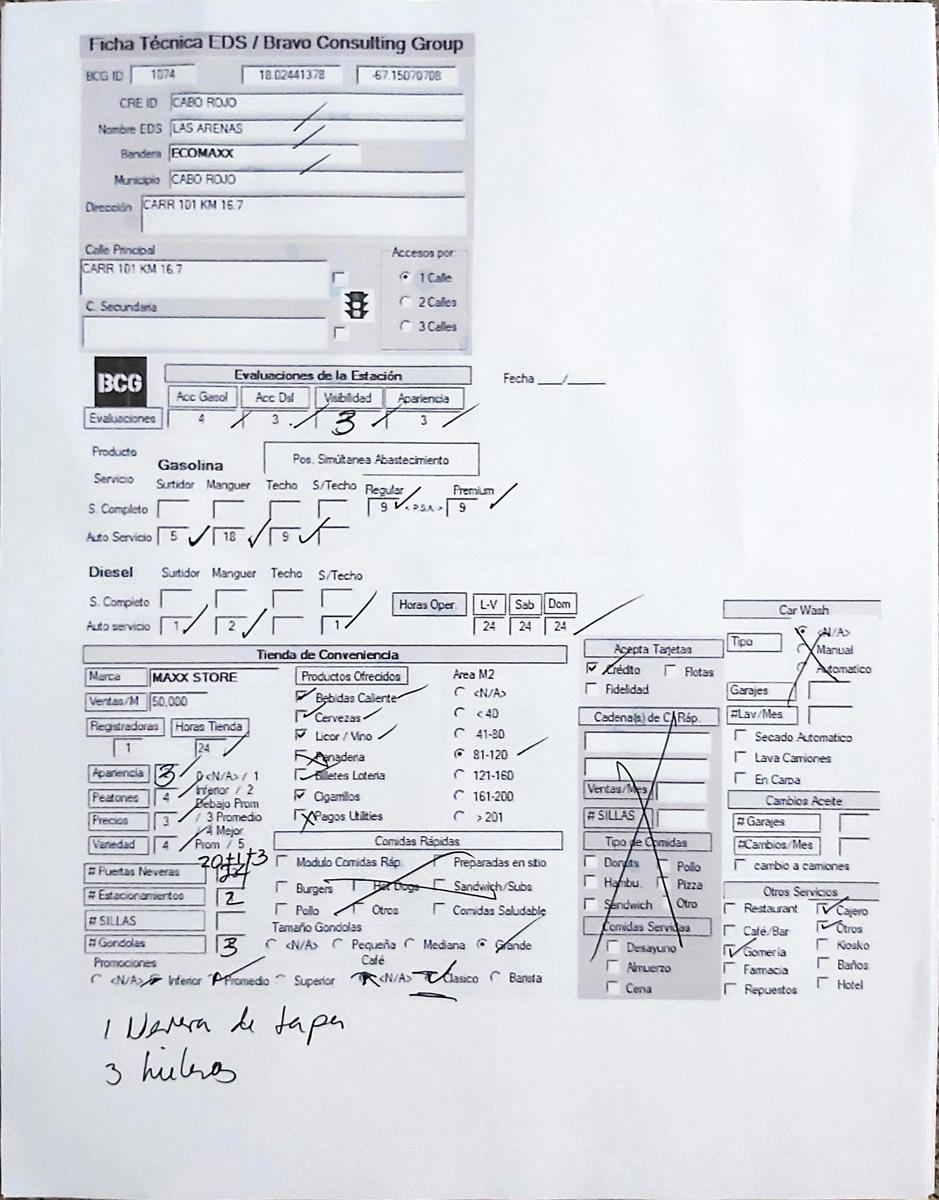 Ficha Técnica EDS / Bravo Consulting Group
BCG ID 1074 18.02441378 -67.15070708
CRE ID CABO ROJO
Nombre EDS LAS ARENAS
Bandera ECOMAXX
Municipio CABO ROJO
Dirección CARR 101 KM 16.7
Calle Principal
CARR 101 KM 16.7
C. Secundaria
Accesos por:
1 Calle
2 Calles
3 Calles
BCG
Evaluaciones de la Estación
Fecha ___/______
Acc Gasol Acc Dsl Visibilidad Apariencia
Evaluaciones 4 3 3 3
Producto
Servicio
Gasolina
Pos. Simúltanea Abastecimiento
Surtidor Manguer Techo S/Techo Regular Premium
S. Completo 9 < P.S.A. > 9
Auto Servicio 5 18 9
Diesel Surtidor Manguer Techo S/Techo
S. Completo
Auto servicio 1 2 1
Horas Oper. L-V Sab Dom
24 24 24
Tienda de Conveniencia
Marca MAXX STORE
Ventas/M 50,000
Registradoras Horas Tienda
1 24
Apariencia 3
Peatones 4
Precios 3
Variedad 4
0 <N/A> / 1
Inferior / 2
Debajo Prom
/ 3 Promedio
/ 4 Mejor
Prom / 5
20+1+3
# Puertas Neveras
# Estacionamientos 2
# SILLAS
# Gondolas 3
Productos Ofrecidos
Bebidas Caliente
Cervezas
Licor / Vino
Panaderia
Billetes Loteria
Cigarrillos
Pagos Utilities
Area M2
<N/A>
< 40
41-80
81-120
121-160
161-200
> 201
Comidas Rápidas
Modulo Comidas Ráp. Preparadas en sitio
Burgers Hot Dogs Sandwich/Subs
Pollo Otros Comidas Saludable
Tamaño Gondolas
<N/A> Pequeña Mediana Grande
Promociones
<N/A> Inferior Promedio Superior
Café
<N/A> Clasico Barista
Acepta Tarjetas
Crédito Flotas
Fidelidad
Cadena(s) de C. Ráp.
Ventas/Mes
# SILLAS
Tipo de Comidas
Donuts Pollo
Hambu. Pizza
Sandwich Otro
Comidas Servidas
Desayuno
Almuerzo
Cena
Car Wash
Tipo <N/A>
Manual
Automatico
Garajes
#Lav/Mes
Secado Automatico
Lava Camiones
En Carpa
Cambios Aceite
# Garajes
#Cambios/Mes
cambio a camiones
Otros Servicios
Restaurant Cajero
Café/Bar Otros
Gomeria Kiosko
Farmacia Baños
Repuestos Hotel
1 Nevera de tapa
3 hieleras